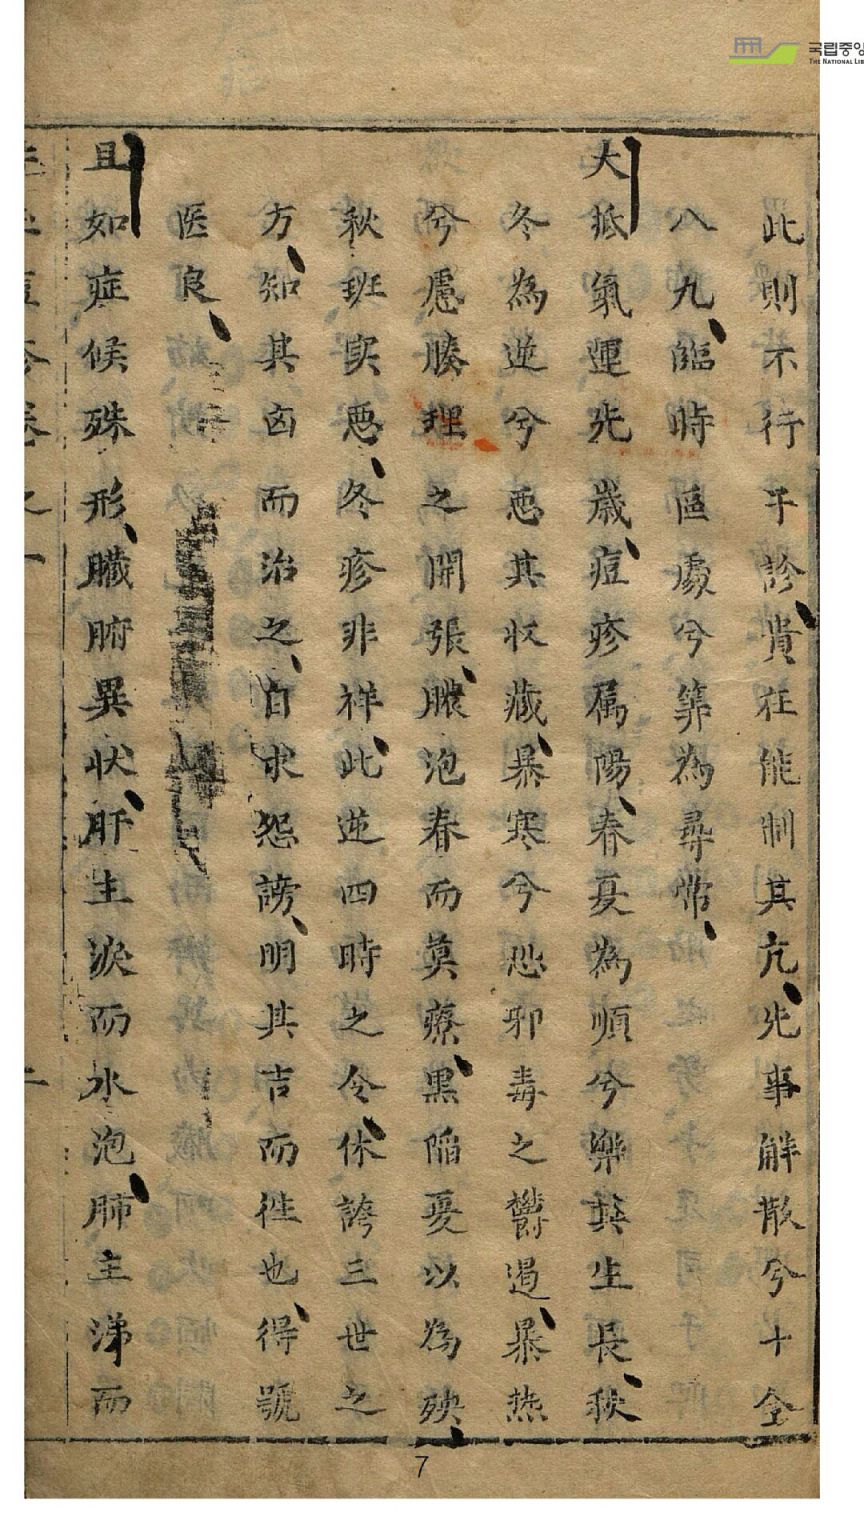 此則不行乎診貴在能制其亢先事解散兮十全
八九臨時區處兮筭為尋常
大抵氣運先歲痘疹屬陽春夏為順兮樂其生長秋
冬為逆兮惡其收藏暴寒兮恐邪毒之欝遏暴热
兮慮腠理之開張膿泡春而莫療黑陷夏以為殃
秋斑実惡冬疹非祥此逆四時之令休誇三世之
方知其凶而治之自求怨謗明其吉而徃也得號
医良
且如症候殊形臟腑異狀肝主淚而水泡肺主涕而
痘疹卷之一
二
7
국립중앙
THE NATIONAL LIB